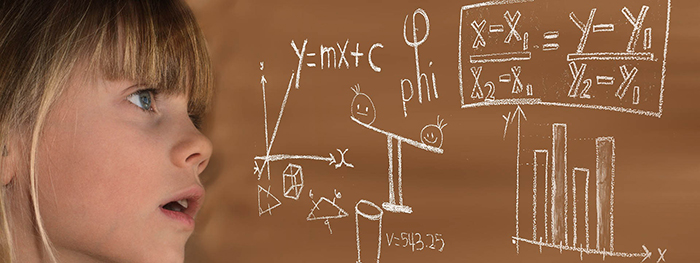 Y=mx+c
φ
phi
x-x₁ / x₂-x₁ = Y-Y₁ / Y₂-Y₁
x
V=543.25
Y
x